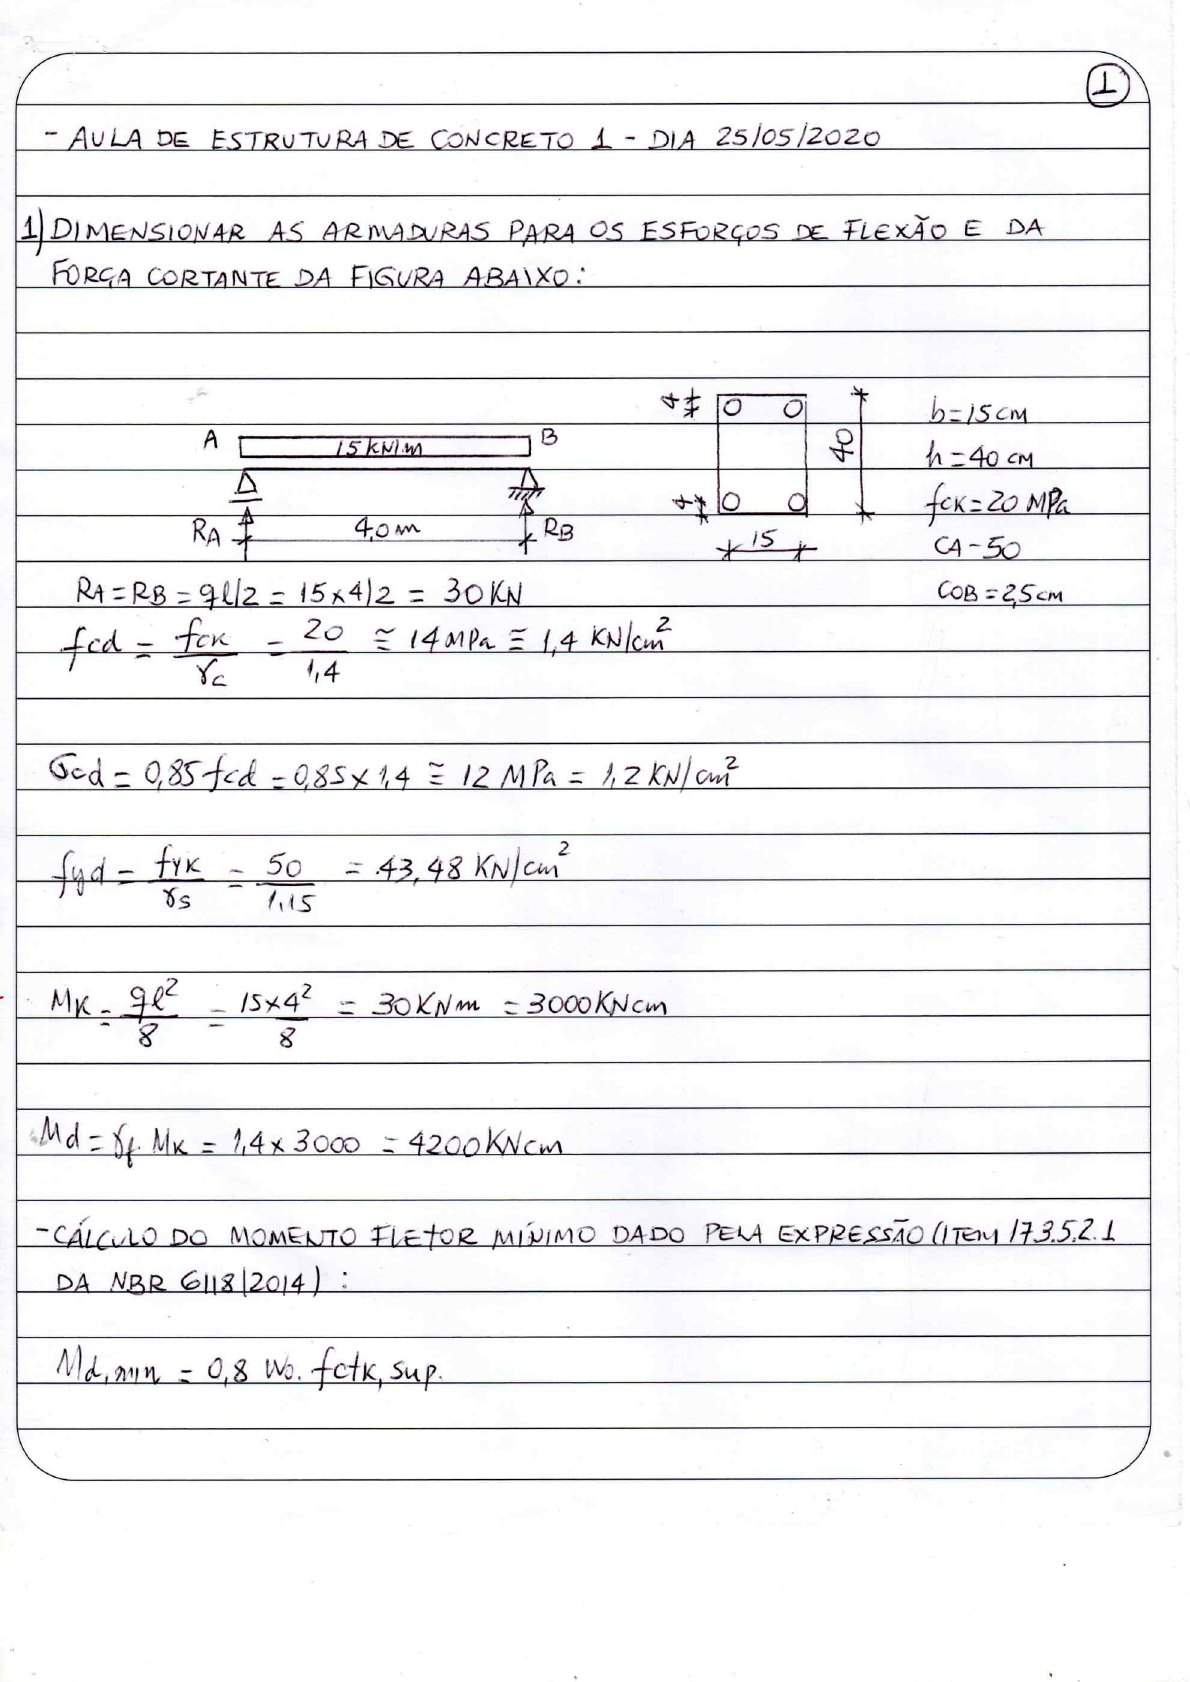 1
- AULA DE ESTRUTURA DE CONCRETO 1 - DIA 25/05/2020
1) DIMENSIONAR AS ARMADURAS PARA OS ESFORÇOS DE FLEXÃO E DA
FORÇA CORTANTE DA FIGURA ABAIXO:
A 15 KN/m B
RA 4,0 m RB
4
4
40
15
b=15 cm
h=40 cm
fck=20 MPa
CA-50
COB=2,5cm
RA=RB=ql/2=15x4/2=30KN
fcd = fck/γc = 20/1,4 ≅ 14 MPa ≅ 1,4 KN/cm²
σcd = 0,85fcd = 0,85x1,4 ≅ 12 MPa = 1,2 KN/cm²
fyd = fyk/γs = 50/1,15 = 43,48 KN/cm²
Mk = ql²/8 = 15x4²/8 = 30KNm = 3000KNcm
Md = γf. Mk = 1,4x3000 = 4200KNcm
- CÁLCULO DO MOMENTO FLETOR MÍNIMO DADO PELA EXPRESSÃO (ITEM 17.3.5.2.1
DA NBR 6118/2014):
Md,min = 0,8 Wo. fctk,sup.